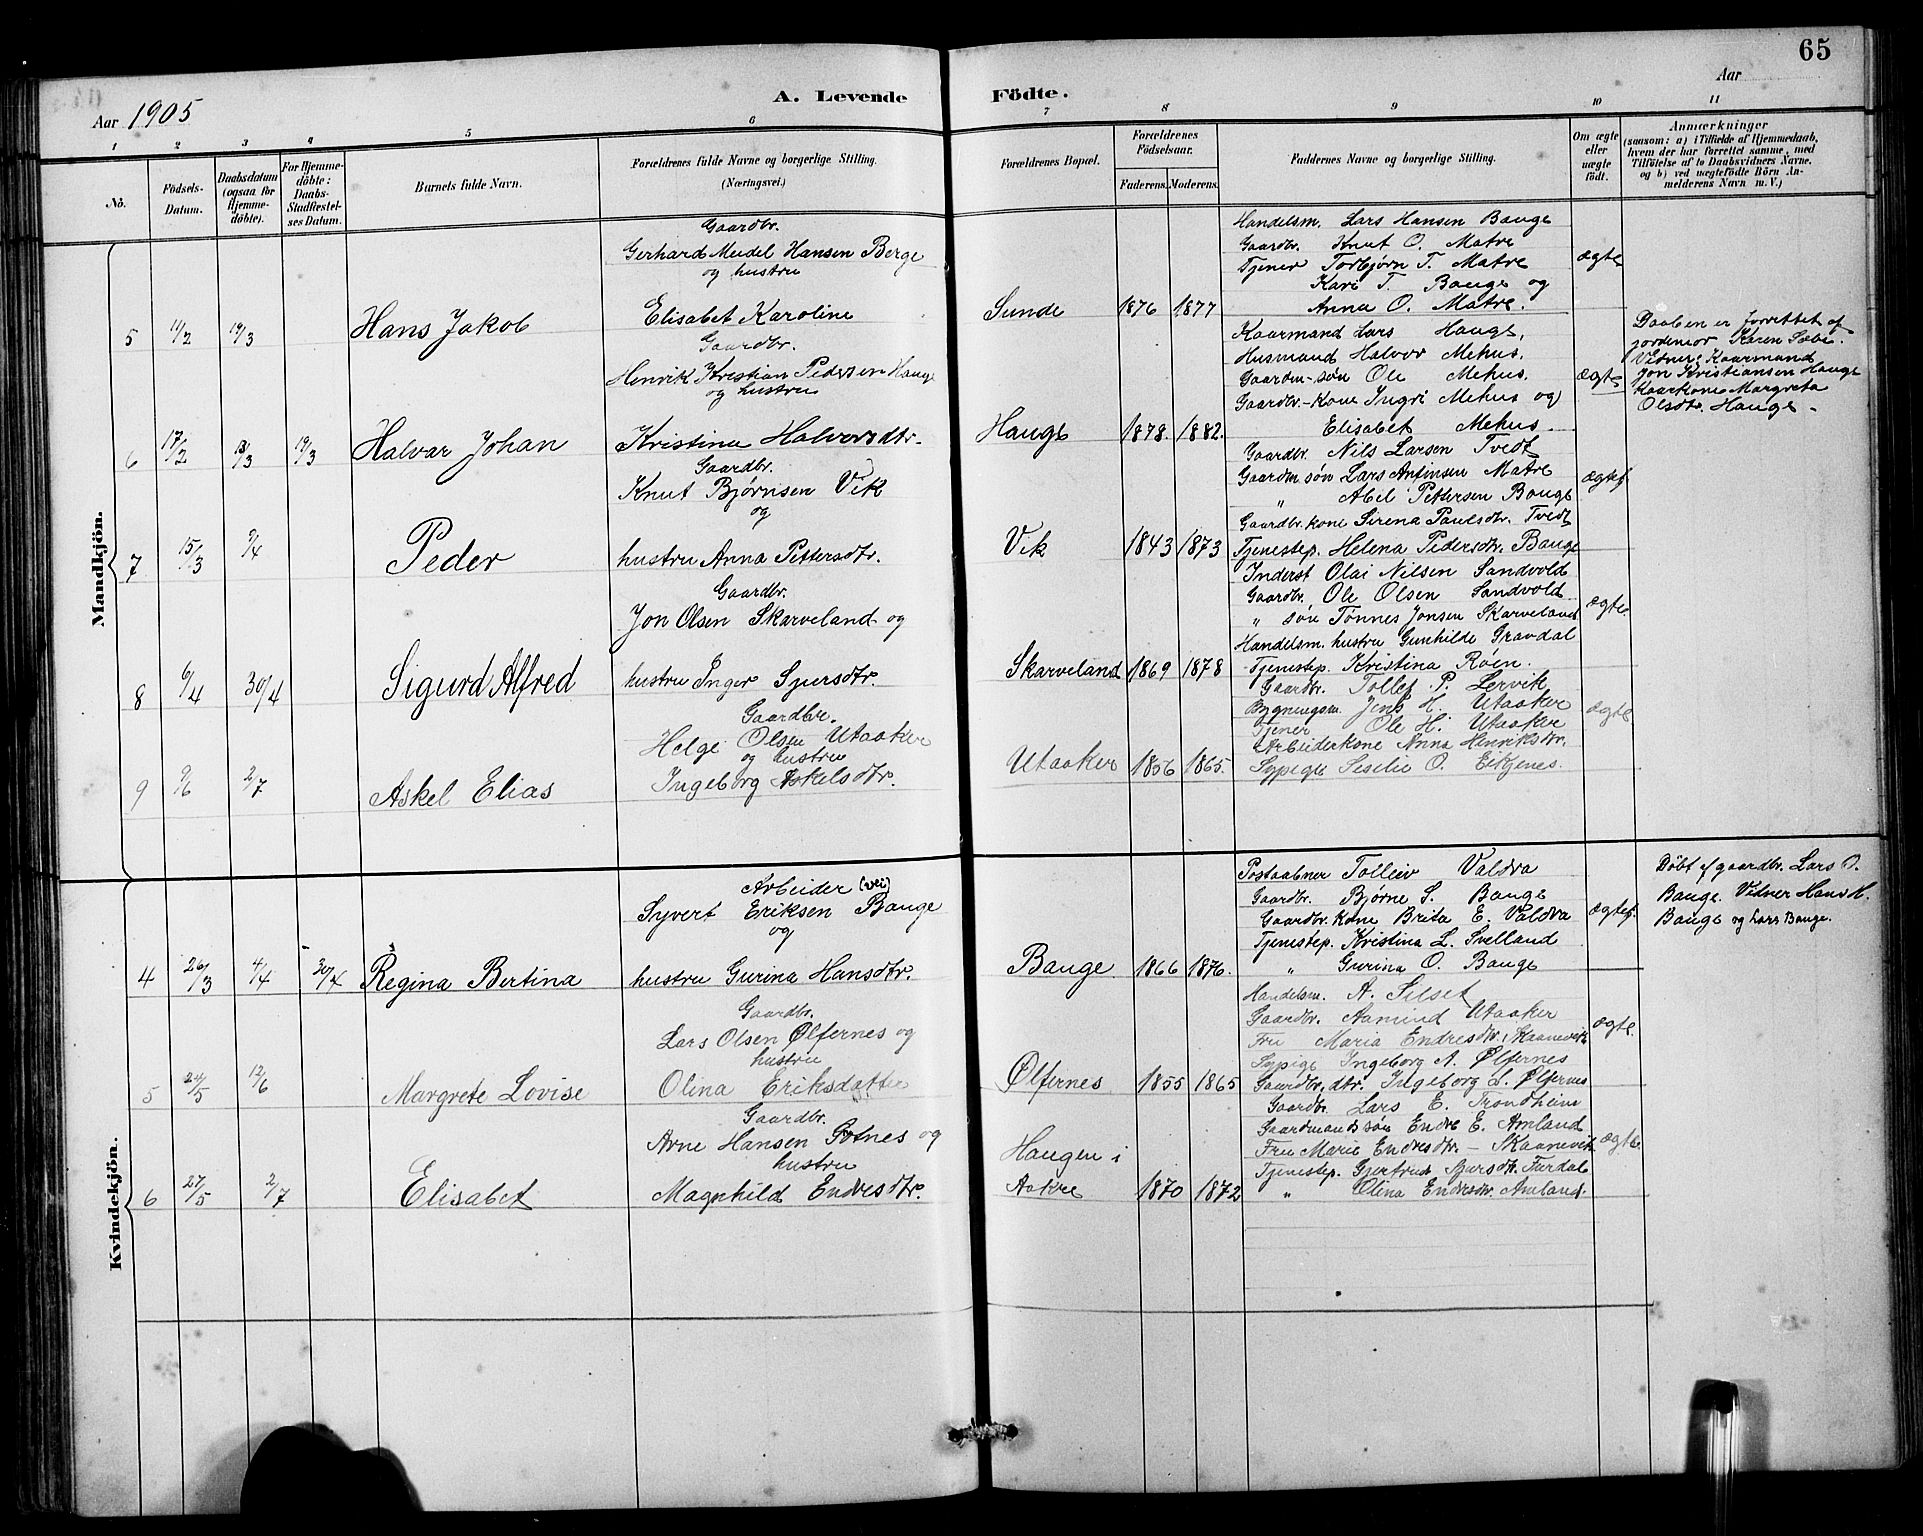 65
Aar 1905
A. Levende Födte.
Aar
1 2 3 4 5 6 7 8 9 10 11
No.
Födsels-Datum.
Daabsdatum (ogsaa for Hjemmedöbte).
For Hjemmedöbte: Daabs-Stadfæstelses Datum.
Barnets fulde Navn.
Forældrenes fulde Navne og borgerlige Stilling.
(Næringsvei.)
Forældrenes Bopæl.
Forældrenes Födselsaar.
Faderens. Moderens.
Faddernes Navne og borgerlige Stilling.
Om ægte eller uægte födt.
Anmærkninger
(saasom: a) i Tilfælde af Hjemmedaab, hvem der har forrettet samme, med Tilföielse af to Daabsvidners Navne, og b) ved uægtefödte Börn Anmelderens Navn m. V.)
Mandkjön.
5 11/2 19/3 Hans Jakob
Gaardbr.
Gerhard Meidel Hansen Berge
og hustru
Elisabet Karoline
Sunde 1876 1877
Handelsm. Lars Hansen Bauge
Gaardbr. Knut O. Matre
Tjener Torbjørn T. Matre
Kari T. Bauge og
Anna O. Matre.
ægte
6 17/2 13/3 19/3 Halvar Johan
Gaardbr.
Henrik Kristian Pedersen Hauge
og hustru
Kristina Halvorsdtr.
Hauge 1878. 1882.
Kaarmand Lars Hauge,
Husmand Halvor Mehus.
Gaardm-søn Ole Mehus.
Gaardbr-kone Ingri Mehus og
Elisabet Mehus.
ægte
Daaben er forrettet af
jordemor Karen Sæbø.
Vidner: Kaarmand
Jon Kristiansen Hauge
Kaarkone Margreta
Olsdtr. Hauge.
7 15/3 9/4 Peder
Gaardbr.
Knut Bjørnsen Vik
og
hustru Anna Pettersdtr.
Vik 1843 1873
Gaardbr. Nils Larsen Tvedt
Gaardm. søn Lars Antinsen Matre
" Abel Pettersen Bauge
Gaardbr. kone Sirena Paulsdtr. Tvedt
Tjenestep. Helena Pedersdtr. Bauge
ægtef.
8 6/4 30/4 Sigurd Alfred
Gaardbr.
Jon Olsen Skarveland og
hustru Inger Sjursdtr.
Skarveland 1869 1878
Inderst Olai Nilsen Sandvold
Gaardbr. Ole Olsen Sandvold
" søn Tønnes Jonsen Skarveland
Handelsm. hustru Gunhilde Gravdal
Tjenestep. Kristina Røen.
ægte.
9 9/6 2/7 Askel Elias
Gaardbr.
Helge Olsen Utaaker
og hustru
Ingeborg Askelsdtr.
Utaaker 1856 1865.
Gaardbr. Tollef P. Lervik
Bygningsm. Jens H. Utaaker
Tjener Ole H. Utaaker
Arbeiderkone Anna Henriksdtr.
Sypige Seselie O. Eikjenes.
ægte
Kvindekjön.
4 26/3 4/4 30/4 Regina Bertina
Arbeider (vei)
Syvert Eriksen Bauge
og
hustru Gurina Hansdtr.
Bauge 1866 1876.
Postaabner Tolleiv Valdra
Gaardbr. Bjørne S. Bauge
Gaardbr. kone Brita E. Valdra
Tjenestep. Kristina L. Svelland
" Gurina O. Bauge
ægtef.
Døbt af gaardbr. Lars O.
Bauge. Vidner Hans H.
Bauge og Lars Bauge.
5 24/5 12/6 Margrete Lovise
Gaardbr.
Lars Olsen Ølfernes og
hustru
Olina Eriksdatter
Ølfernes 1855 1865
Handelsm. A. Silset
Gaardbr. Aamund Utaaker
Fru Maria Endresdtr. Skaanevik
Sypige Ingeborg A. Ølfernes
Gaardbr. dtr. Ingeborg L. Ølfernes
ægte.
6 27/5 2/7 Elisabet
Gaardbr.
Arne Hansen og
hustru
Magnhild Endresdtr.
Haugen i
Aakre 1870 1872
Gaardbr. Lars E. Trondheim
Gaardmands søn Endre E. Amland
Fru Marie Endresdtr. - Skaanevik
Tjenestep. Gjertrud Sjursdtr. Furdal
" Olina Endresdtr. Amland.
ægte.